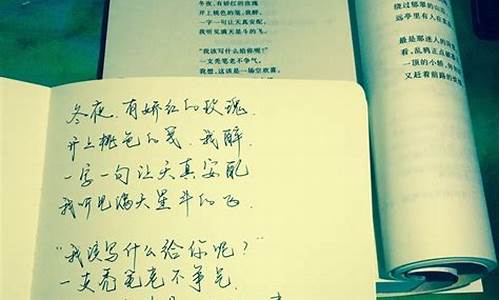 冬夜,有娇红的玫瑰
开上桃色的笺,我醉,
一字一句让天真安配,
我听见满天星斗的飞。
“我该写什么给你呢?”
一支秃笔老不争气,
我想,这该是一场空欢喜。
绕过郁翠的山
远亭里有人在
最是那迷人的
看,乱鸦正点
一顶的小轿,
又赶着前路的
冬夜,有娇红的玫瑰,
开上桃色的笺,我醉,
一字一句让天真安配
我听见满天星斗的飞
“我该写什么给你呢?”
一支秃笔老不争气